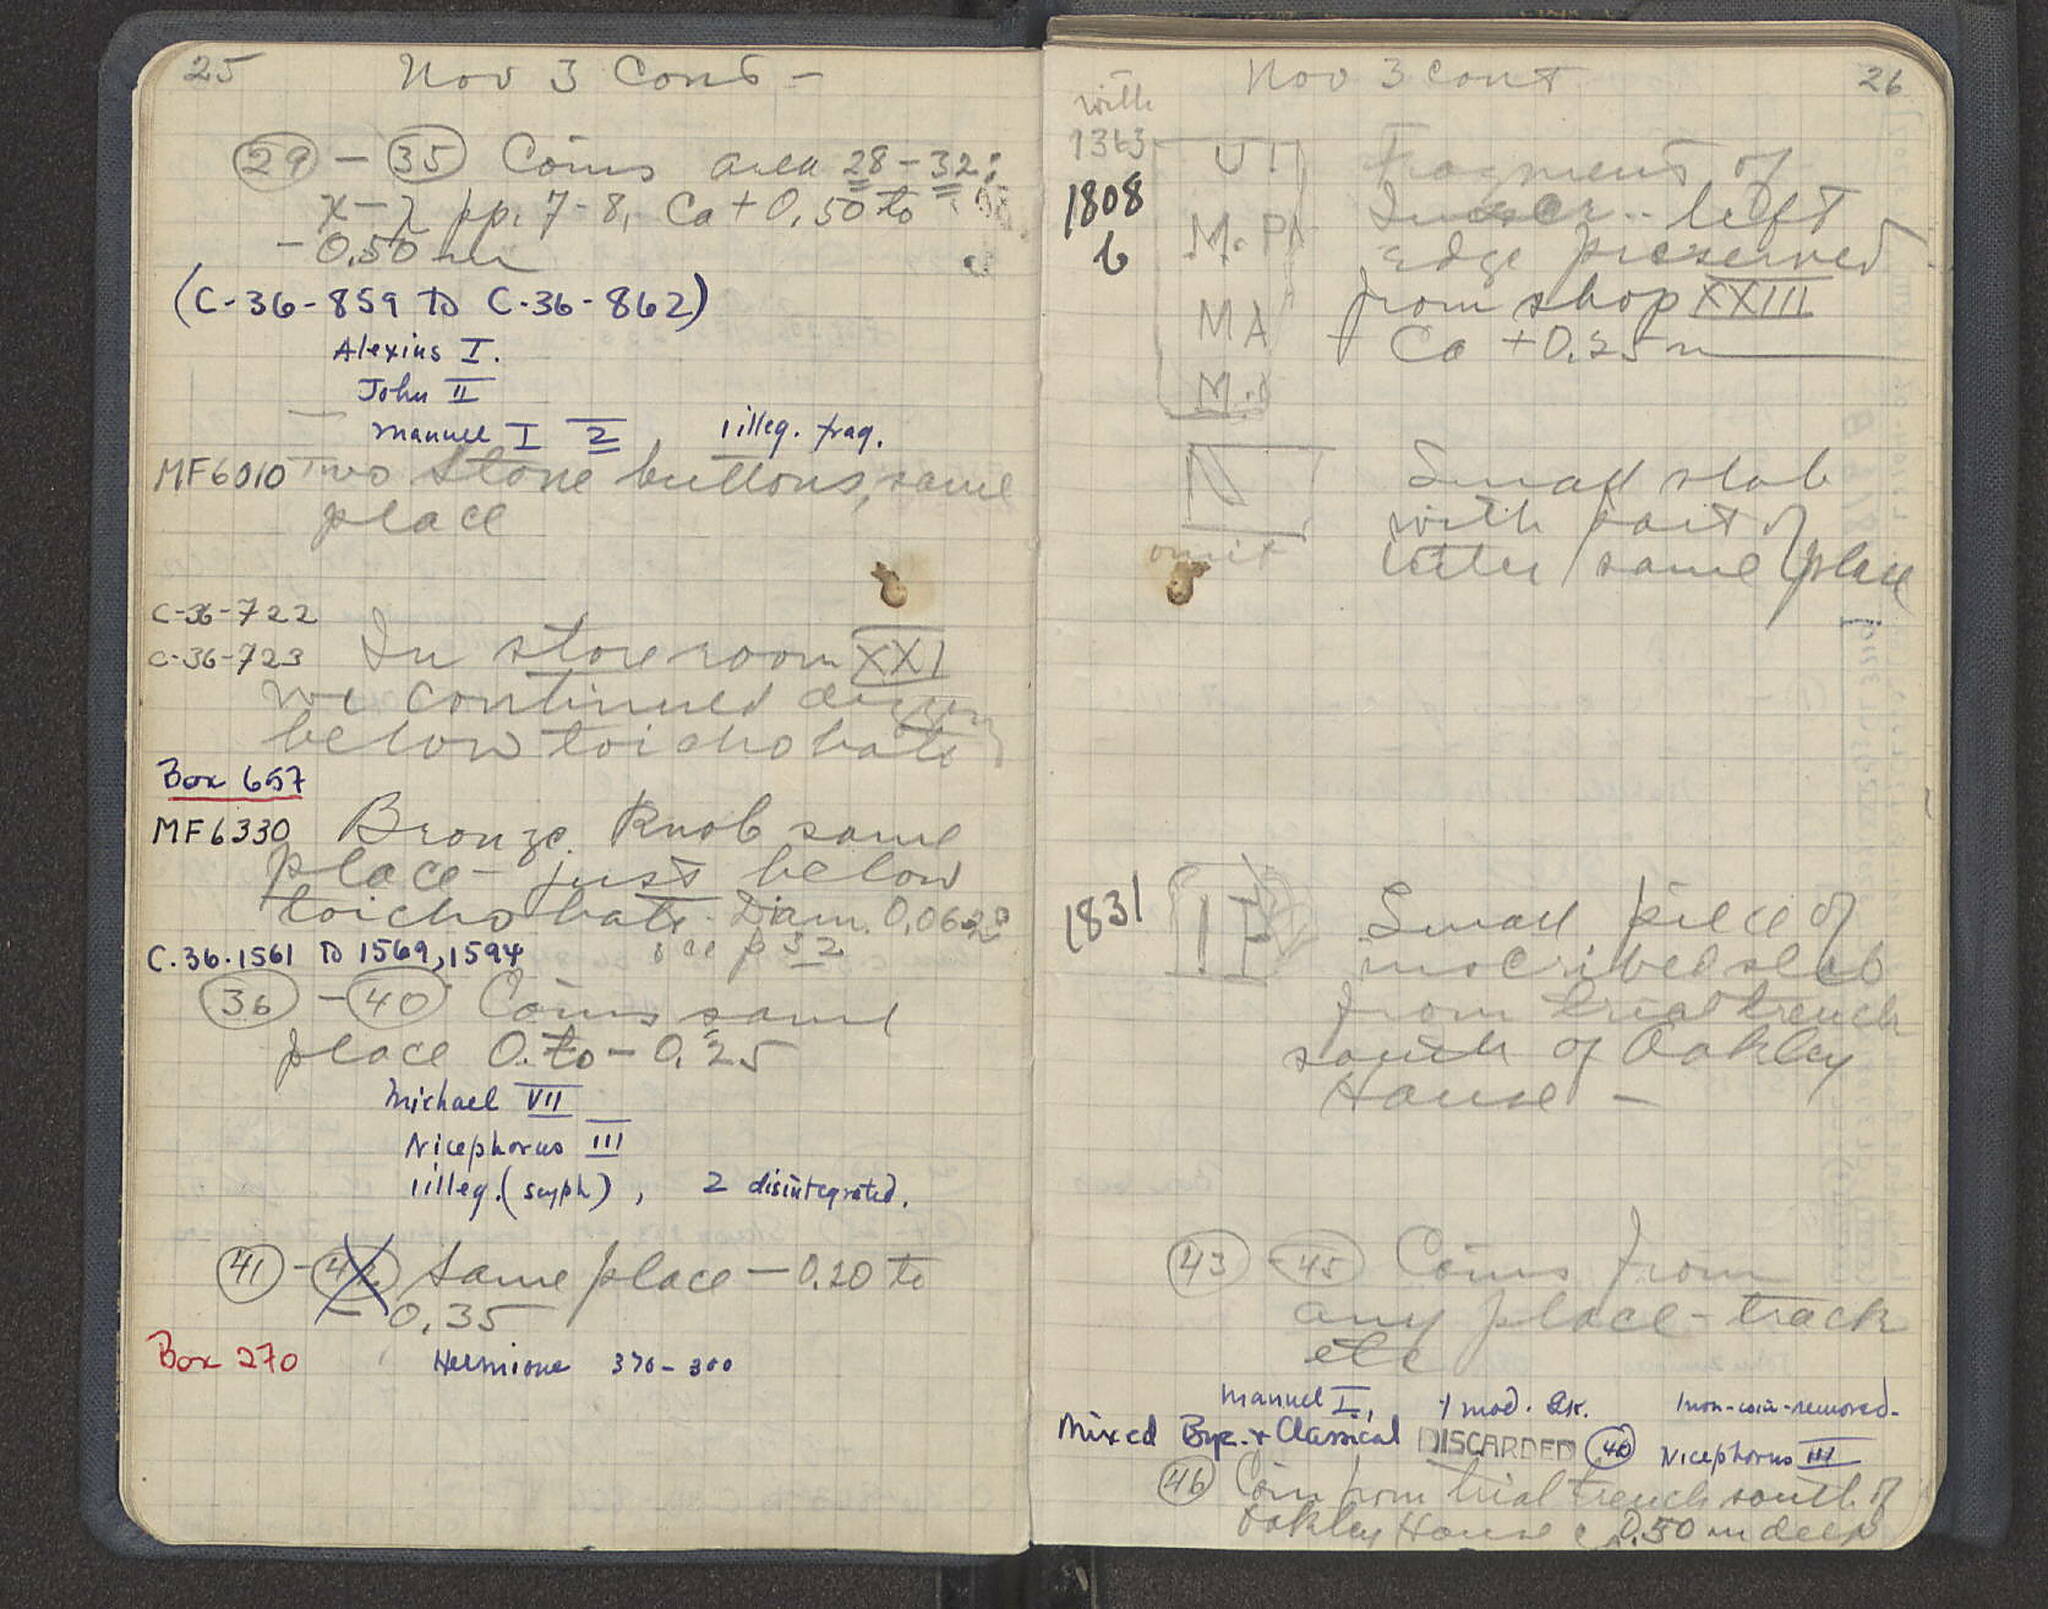 25 Nov 3 Cont -
29 - 35 Coins area 28-32:
pp. 7-8, Ca +0.50 to
-0.50 m
(C-36-859 to C-36-862)
Alexius I.
John II
Manuel I 2, 1 illeg. frag.
MF6010 Two stone buttons, same
place
C-36-722
C-36-723 In storeroom XXI
we continued
below toichobate
Box 657
MF6330 Bronze Knob same
place - just below
toichobate. Diam. 0.062
see p 32
C.36.1561 to 1569, 1594
36 - 40 Coins same
place 0. to -0.25
Michael VII
Nicephorus III
1 illeg. (scyph), 2 disintegrated.
41 - 42 Same place -0.20 to
-0.35
Box 270 Hermione 370-300
Nov 3 Cont 26
with
1343
1808
b
M. P
MA
M.
Fragment of
Inscr.. left
edge preserved
from shop XXIII
Ca +0.25 m
N
omit
Small slab
with part of
letter same place
1831
Small piece of
inscribed slab
from trial trench
south of Oakley
House -
43 - 45 Coins from
any place - track
etc
Manuel I, 1 mod. Gk. 1 non-coin-removed-
Mixed Byz. + Classical DISCARDED 46 Nicephorus III
46 Coin from trial trench south of
Oakley House 0.50 m deep